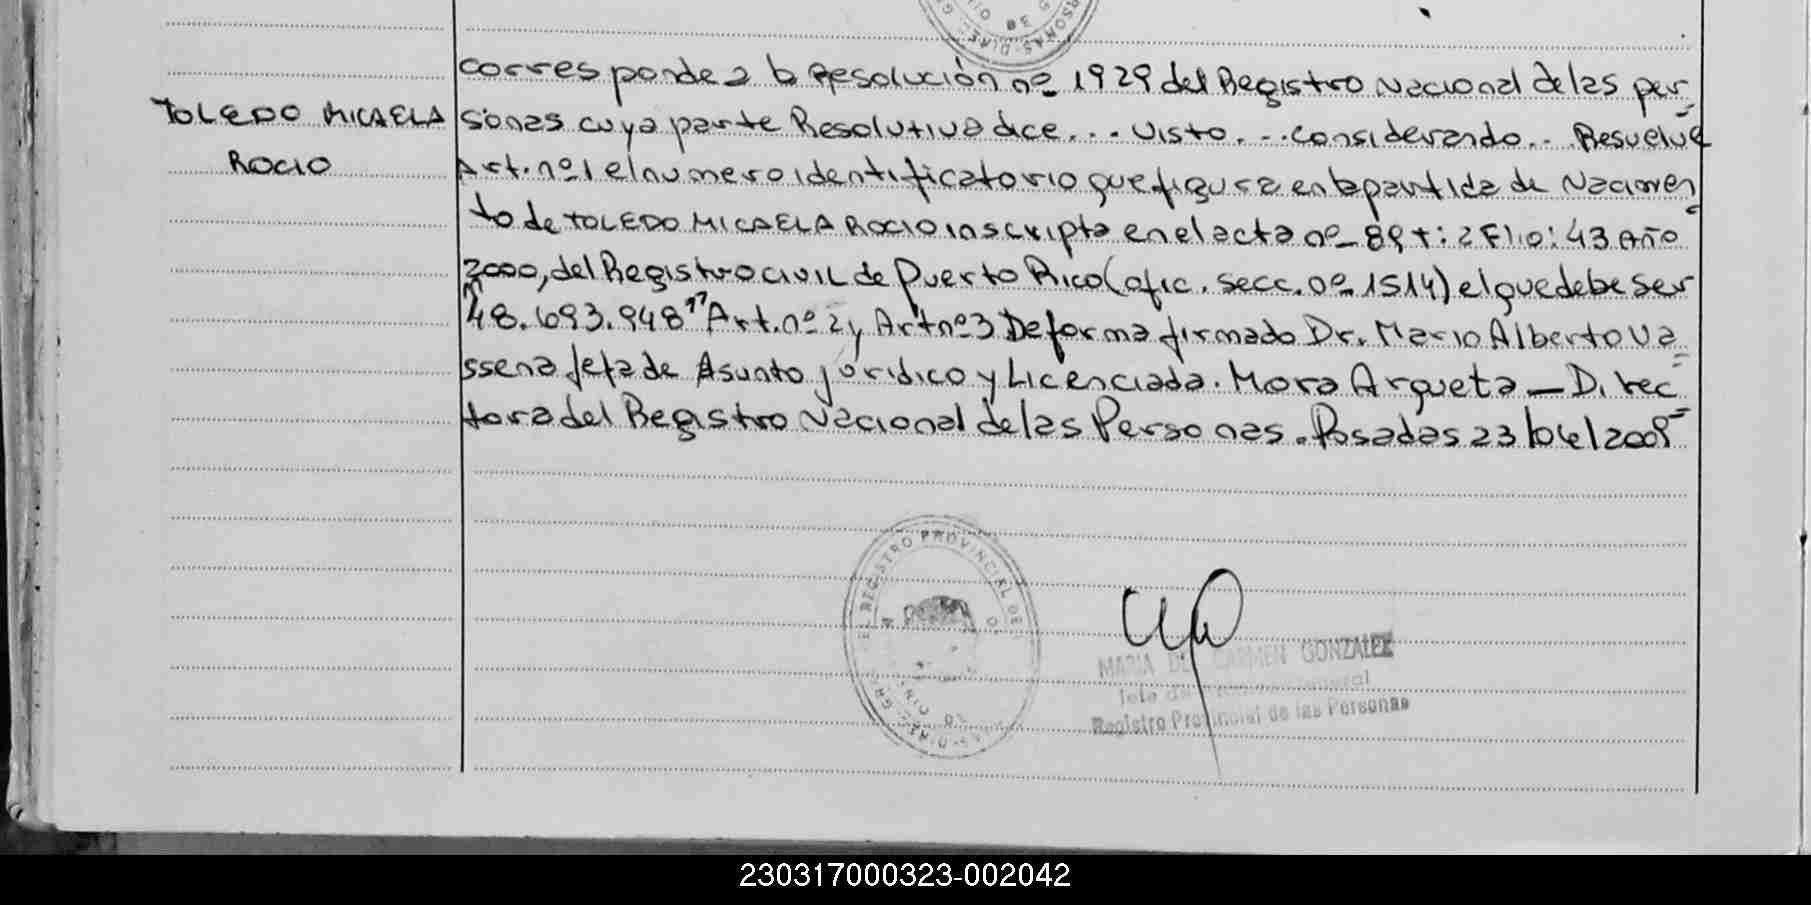 corresponde a la Resolución nº 1929 del Registro Nacional de las per
TOLEDO MICAELA
ROCIO
sonas cuya parte Resolutiva dice... Visto... considerando... Resuelve
Art. nº 1 el numero identificatorio que figura en la partida de Nacimien
to de TOLEDO MICAELA ROCIO inscripta en el acta nº 89 t: 2 Flio: 43 Año
2000, del Registro civil de Puerto Rico (ofic. secc. nº 1514) el que debe ser
"48.693.948" Art. nº 2 y Art nº 3 De forma firmado Dr. Mario Alberto Va
ssena Jefa de Asunto jurídico y Licenciada. Mora Arqueta — Direc
tora del Registro Nacional de las Personas. Posadas 23/04/2009
REGISTRO PROVINCIAL DE
MARIA DEL CARMEN GONZALEZ
Registro Provincial de las Personas
230317000323-002042